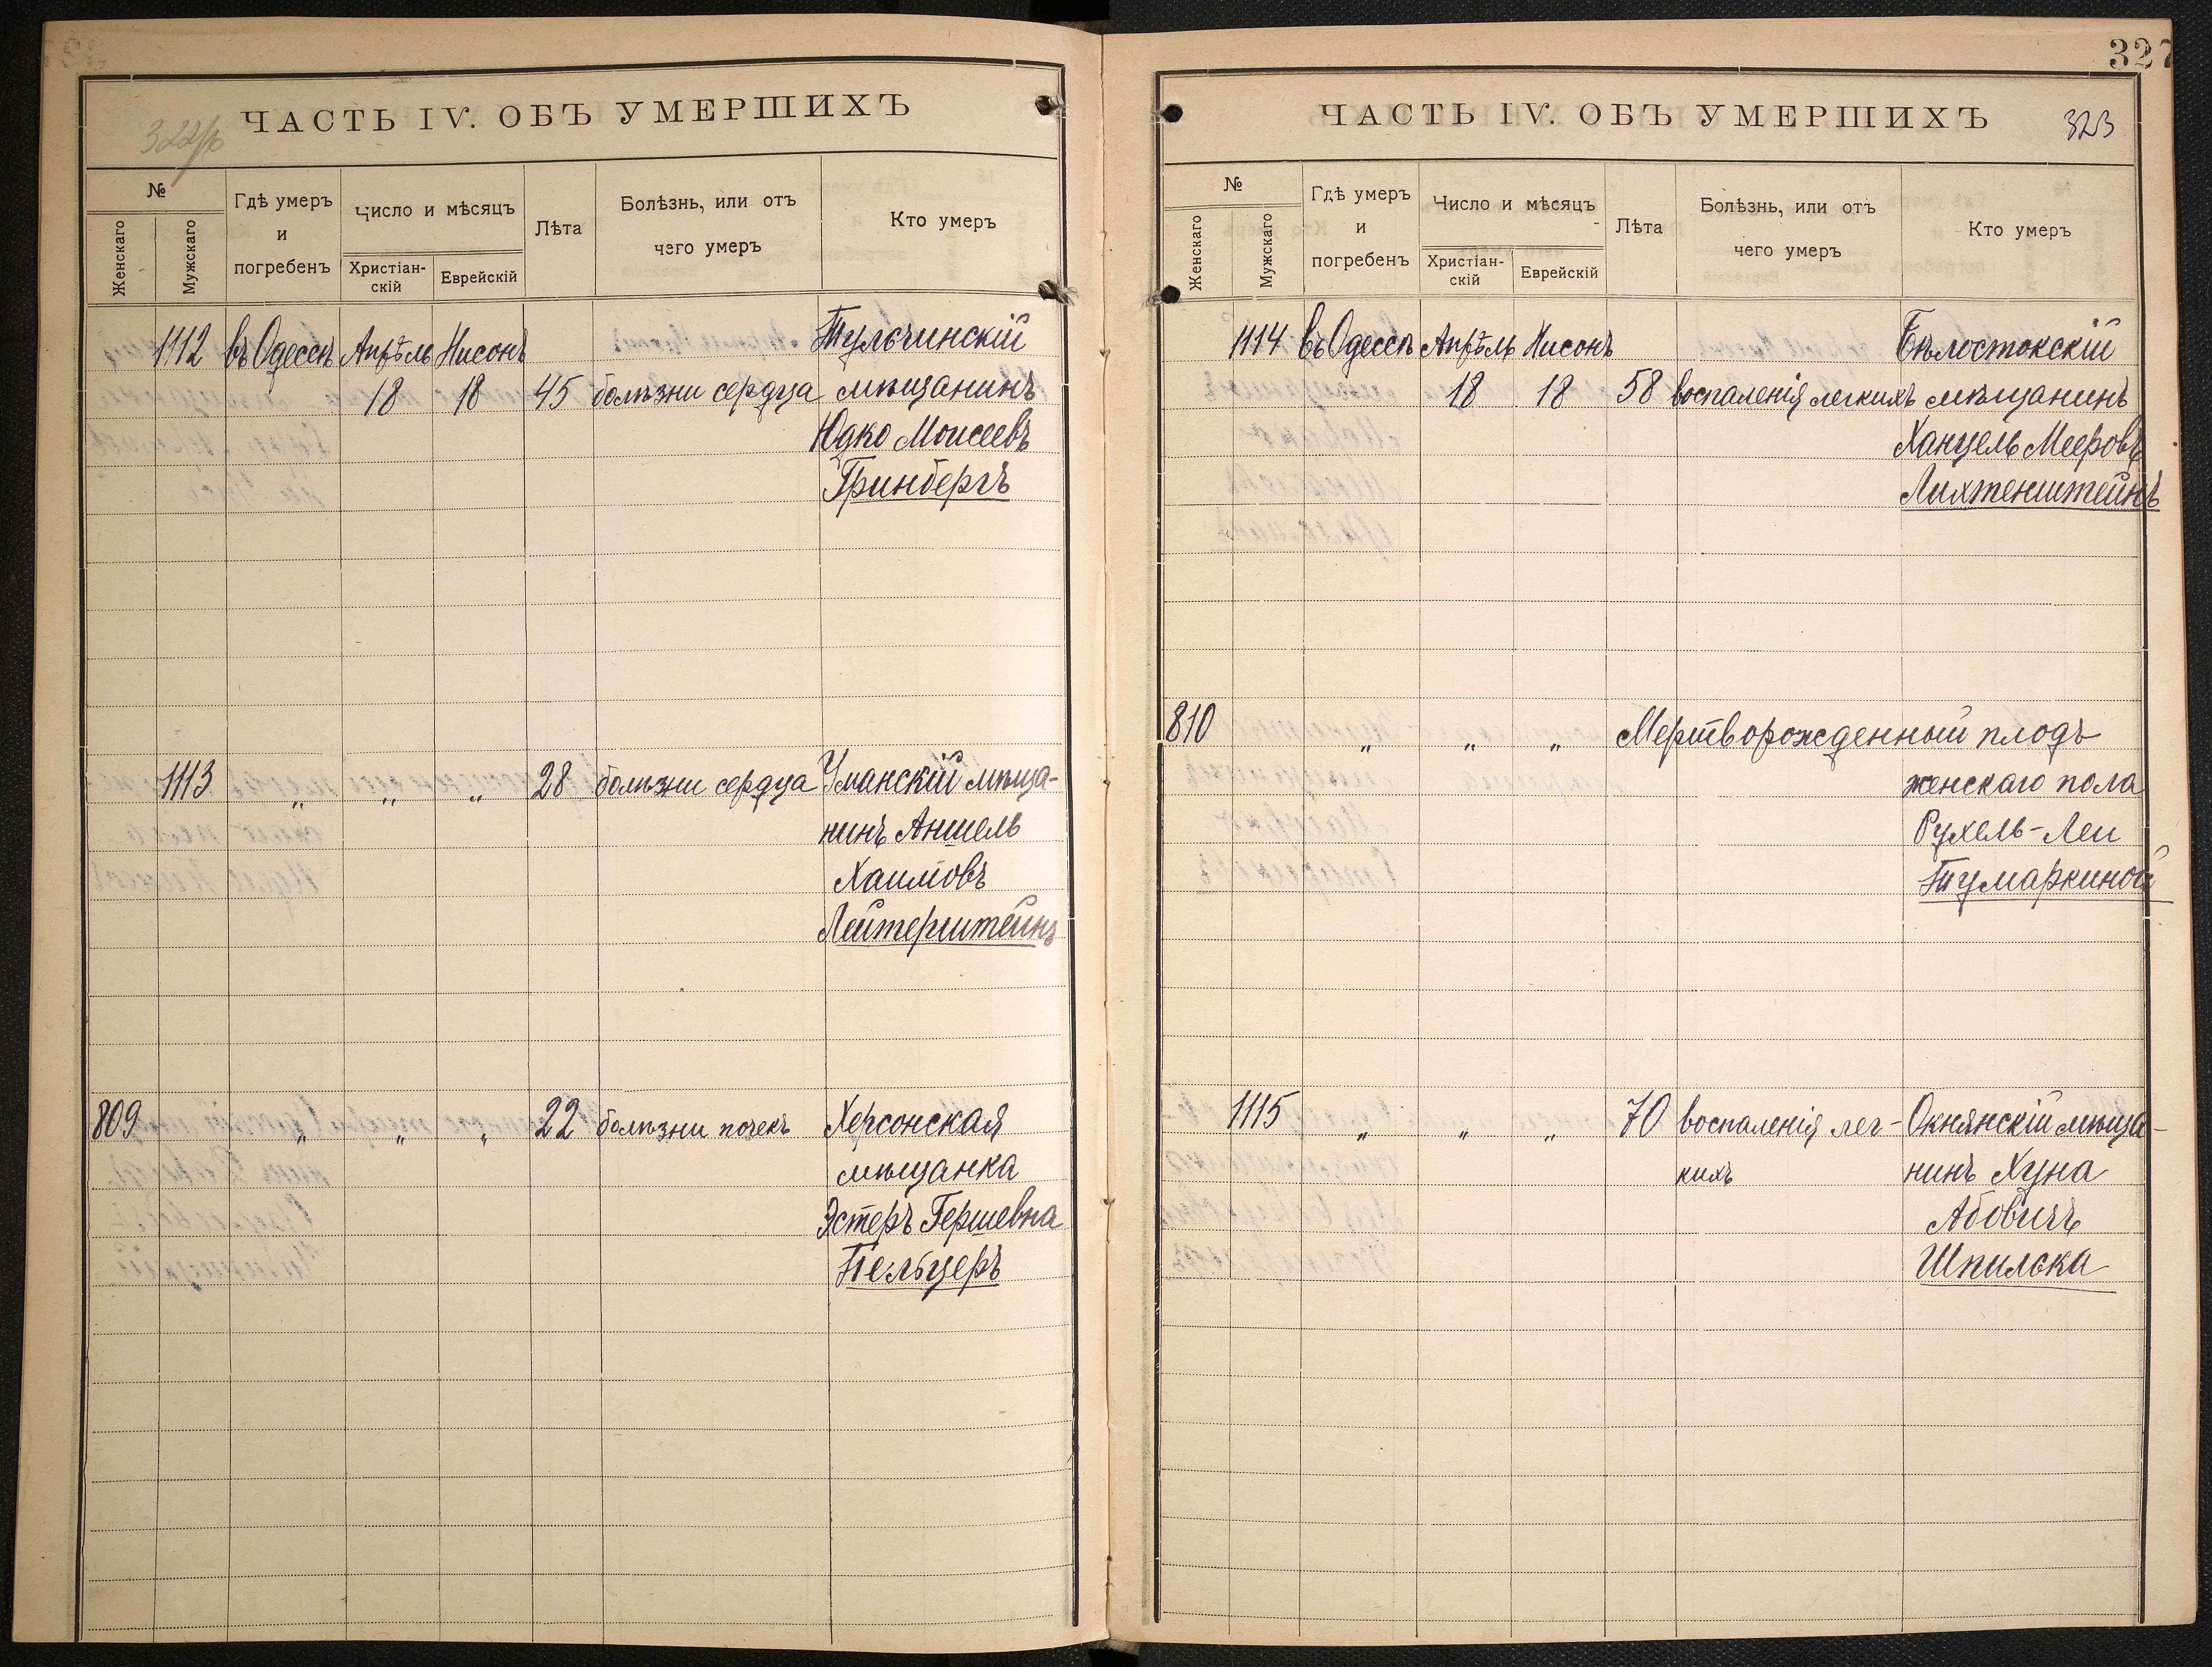 ЧАСТЬ IV. ОБЪ УМЕРШИХЪ
№
Женскаго
Мужскаго
Гдѣ умеръ
и
погребенъ
Число и мѣсяцъ
Христіан-
скій
Еврейскій
Лѣта
Болѣзнь, или отъ
чего умеръ
Кто умеръ
1112 въ Одессѣ Апрѣль Нисонъ Тульчинскій
18 18 45 болѣзни сердца мѣщанинъ
Юдко Моисеевъ
Гринбергъ
1113 „ „ „ 28 болѣзни сердца Уманскій мѣща-
нинъ Аншель
Хаимовъ
Лейтерштейнъ
809 „ „ „ 22 болѣзни почекъ Херсонская
мѣщанка
Эстеръ Гершевна
Пельцеръ
327
ЧАСТЬ IV. ОБЪ УМЕРШИХЪ 323
№
Женскаго
Мужскаго
Гдѣ умеръ
и
погребенъ
Число и мѣсяцъ
Христіан-
скій
Еврейскій
Лѣта
Болѣзнь, или отъ
чего умеръ
Кто умеръ
1114 въ Одессѣ Апрѣль Нисонъ Бѣлостокскій
18 18 58 воспаленія легкихъ мѣщанинъ
Ханцель Мееровъ
Лихтенштейнъ
810 „ „ „ Мертворожденный плодъ
женскаго пола
Рухель-Леи
Тумаркиной
1115 „ „ „ 70 воспаленія лег- Окнянскій мѣща-
кихъ нинъ Хуна
Абовичъ
Шпилька